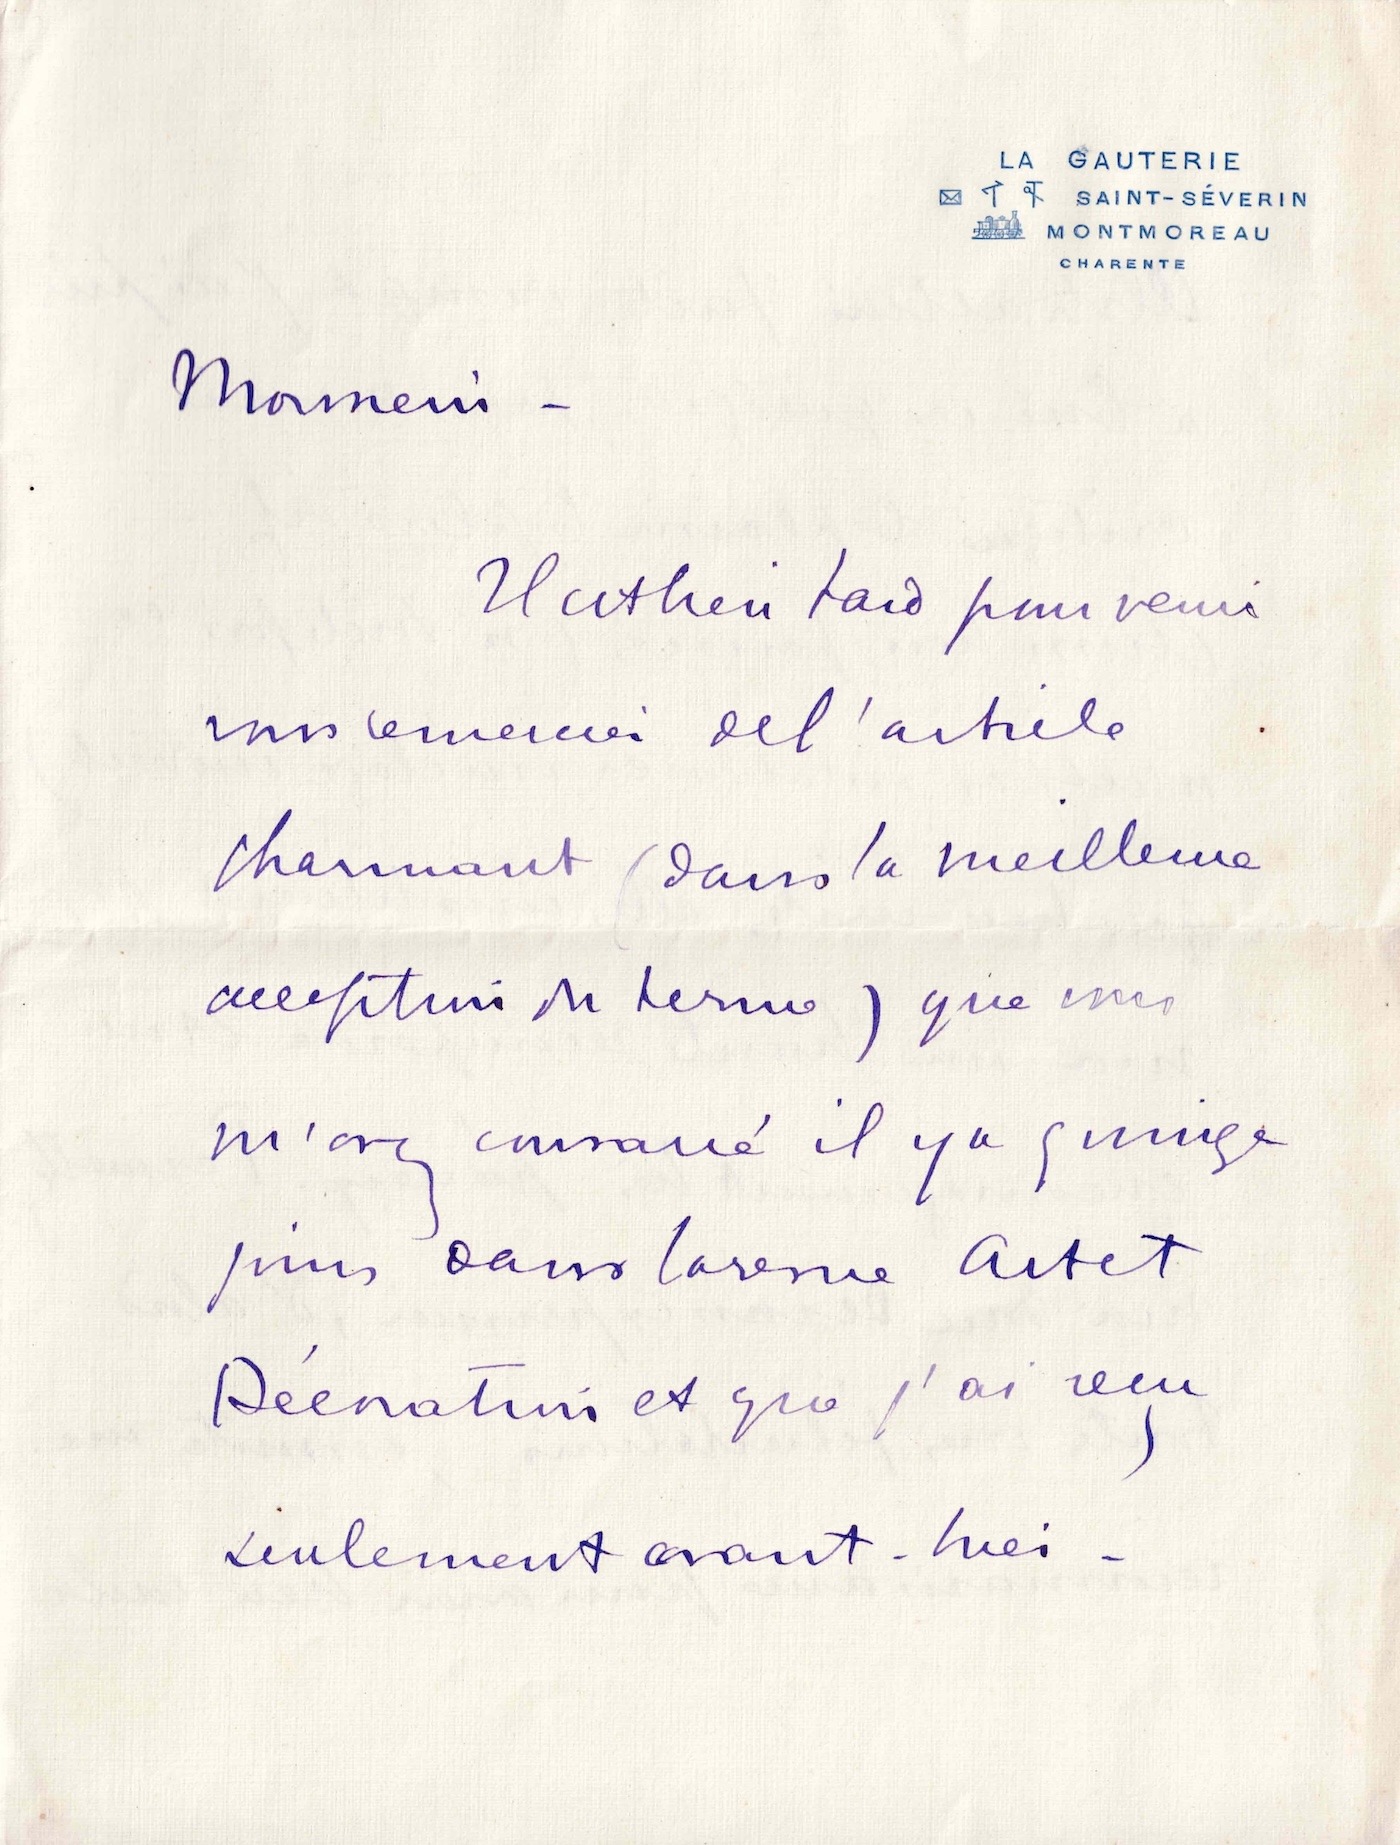 LA GAUTERIE
SAINT-SÉVERIN
MONTMOREAU
CHARENTE
Monsieur -
Il est bien tard pour venir
vous remercier de l'article
charmant (dans la meilleure
acception du terme) que vous
m'avez consacré il y a quinze
jours dans la revue Art et
Décoration et que j'ai reçu
seulement avant-hier -